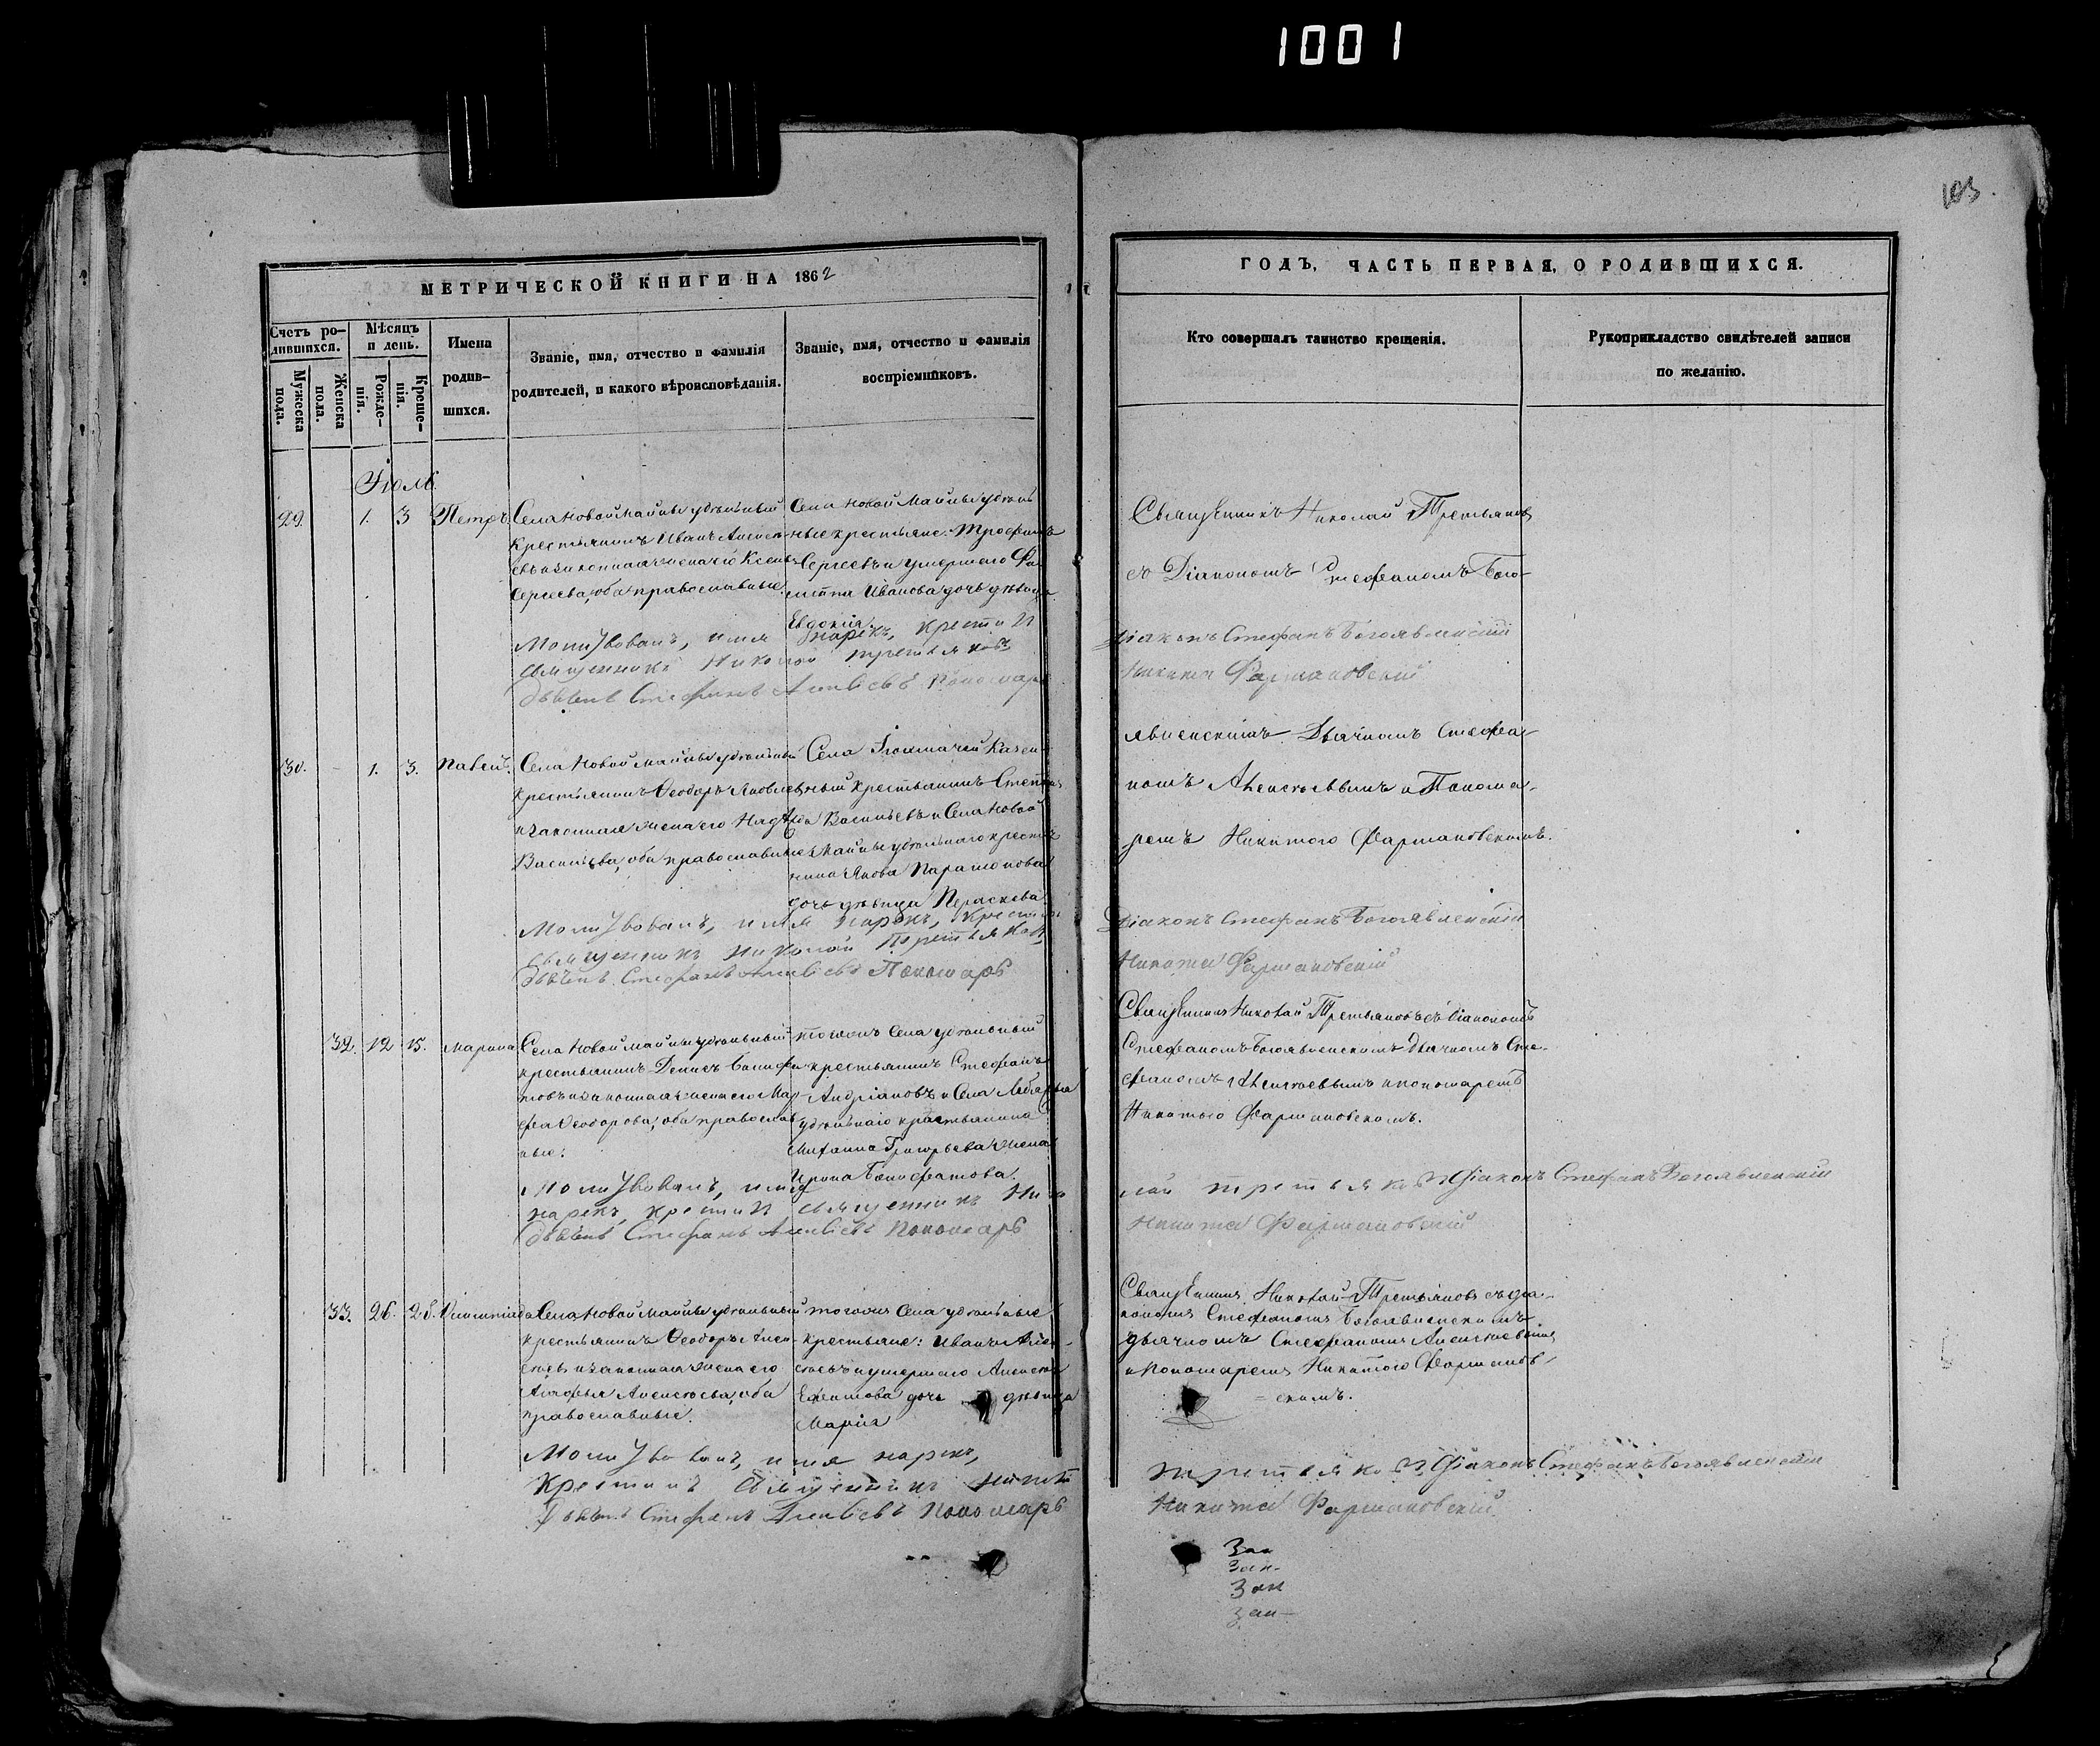 1001
103.
МЕТРИЧЕСКОЙ КНИГИ НА 1862
Счетъ ро-
дившихся.
Мужеска
пола.
Женска
пола.
Мѣсяцъ
и день.
Рожде-
нія.
Креще-
нія.
Имена
родив-
шихся.
Званіе, имя, отчество и фамилія
родителей, и какого вѣроисповѣданія.
Званіе, имя, отчество и фамилія
воспріемниковъ.
Іюль
29. 1. 3 Петръ.
Села Новой Майны удѣльный
крестьянинъ Иванъ Алексѣ-
евъ и законная жена его Ксенья
Сергеева, оба православные.
Села Новой Майны удѣль-
ные крестьяне: Трофимъ
Сергеевъ и умершего Фи-
липпа Иванова дочь дѣвица
Евдокія.
Молитвовалъ, имя нарекъ, крестилъ
священникъ Николай Третьяковъ,
Дьячекъ Стефанъ Алексѣевъ Пономарь
30. - 1. 3. Павелъ.
Села Новой Майны удѣльный
крестьянинъ Ѳеодоръ Яковлевъ
и законная жена его Надежда
Васильева, оба православные
Села Казен-
ный крестьянинъ Степанъ
Васильевъ и Села Новой
Майны удѣльнаго крестья-
нина Якова Парамонова
дочь дѣвица Пераскева.
Молитвовалъ, имя нарекъ, крестилъ
священникъ Николай Третьяковъ,
Дьячекъ Стефанъ Алексѣевъ Пономарь
32. 12 15. Марина
Села Новой Майны удѣльный
крестьянинъ Денисъ Бонифа-
товъ и законная жена его Мар-
фа Ѳеодорова, оба православ-
ные.
Тогожъ Села удѣльный
крестьянинъ Стефанъ
Андріановъ и Села
удѣльнаго крестьянина
Михаила Григорьева жена
Ирина Бонифатова.
Молитвовалъ, имя
нарекъ, крестилъ священникъ Нико
Дьячекъ Стефанъ Алексѣевъ Пономарь
33. 26. 28.
Села Новой Майны удѣльный
крестьянинъ Ѳеодоръ Алек-
сѣевъ и законная жена его
Агафья Алексѣева, оба
православные.
тогожъ Села удѣльные
крестьяне: Иванъ Алек-
сѣевъ и умершаго Алексѣя
Ефимова дочь дѣвица
Марія
Молитвовалъ, имя нарекъ,
Крестилъ Священникъ
Дьячекъ Стефанъ Алексѣевъ Пономарь
ГОДЪ, ЧАСТЬ ПЕРВАЯ, О РОДИВШИХСЯ.
Кто совершалъ таинство крещенія.
Рукоприкладство свидѣтелей записи
по желанію.
Священникъ Николай Третьяковъ
съ Діакономъ Стефаномъ Бого-
Діаконъ Стефанъ Богоявленскій
Никита Фармаковскій
явленскимъ Дьячкомъ Стефа-
номъ Алексѣевымъ и Понома-
ремъ Никитою Фармаковскимъ.
Діаконъ Стефанъ Богоявленскій
Никита Фармаковскій
Священникъ Николай Третьяковъ съ діакономъ
Стефаномъ Богоявленскимъ Дьячкомъ Сте-
фаномъ Алексѣевымъ и пономаремъ
Никитою Фармаковскимъ.
лай Третьяковъ Діаконъ Стефанъ Богоявленскій
Никита Фармаковскій
Священникъ Николай Третьяковъ съ діа-
кономъ Стефаномъ Богоявленскимъ
дьячкомъ Стефаномъ Алексѣевымъ
и пономаремъ Никитою Фармаков-
скимъ.
Третьяковъ Діаконъ Стефанъ Богоявленскій
Никита Фармаковскій.